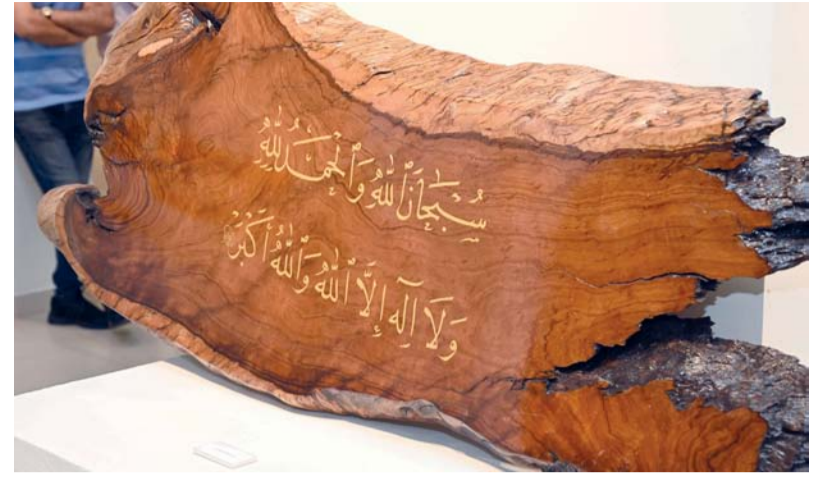 سُبْحَانَ ٱللَّهِ وَٱلْحَمْدُ لِلَّهِ
وَلَا إِلَٰهَ إِلَّا ٱللَّهُ وَٱللَّهُ أَكْبَرُ